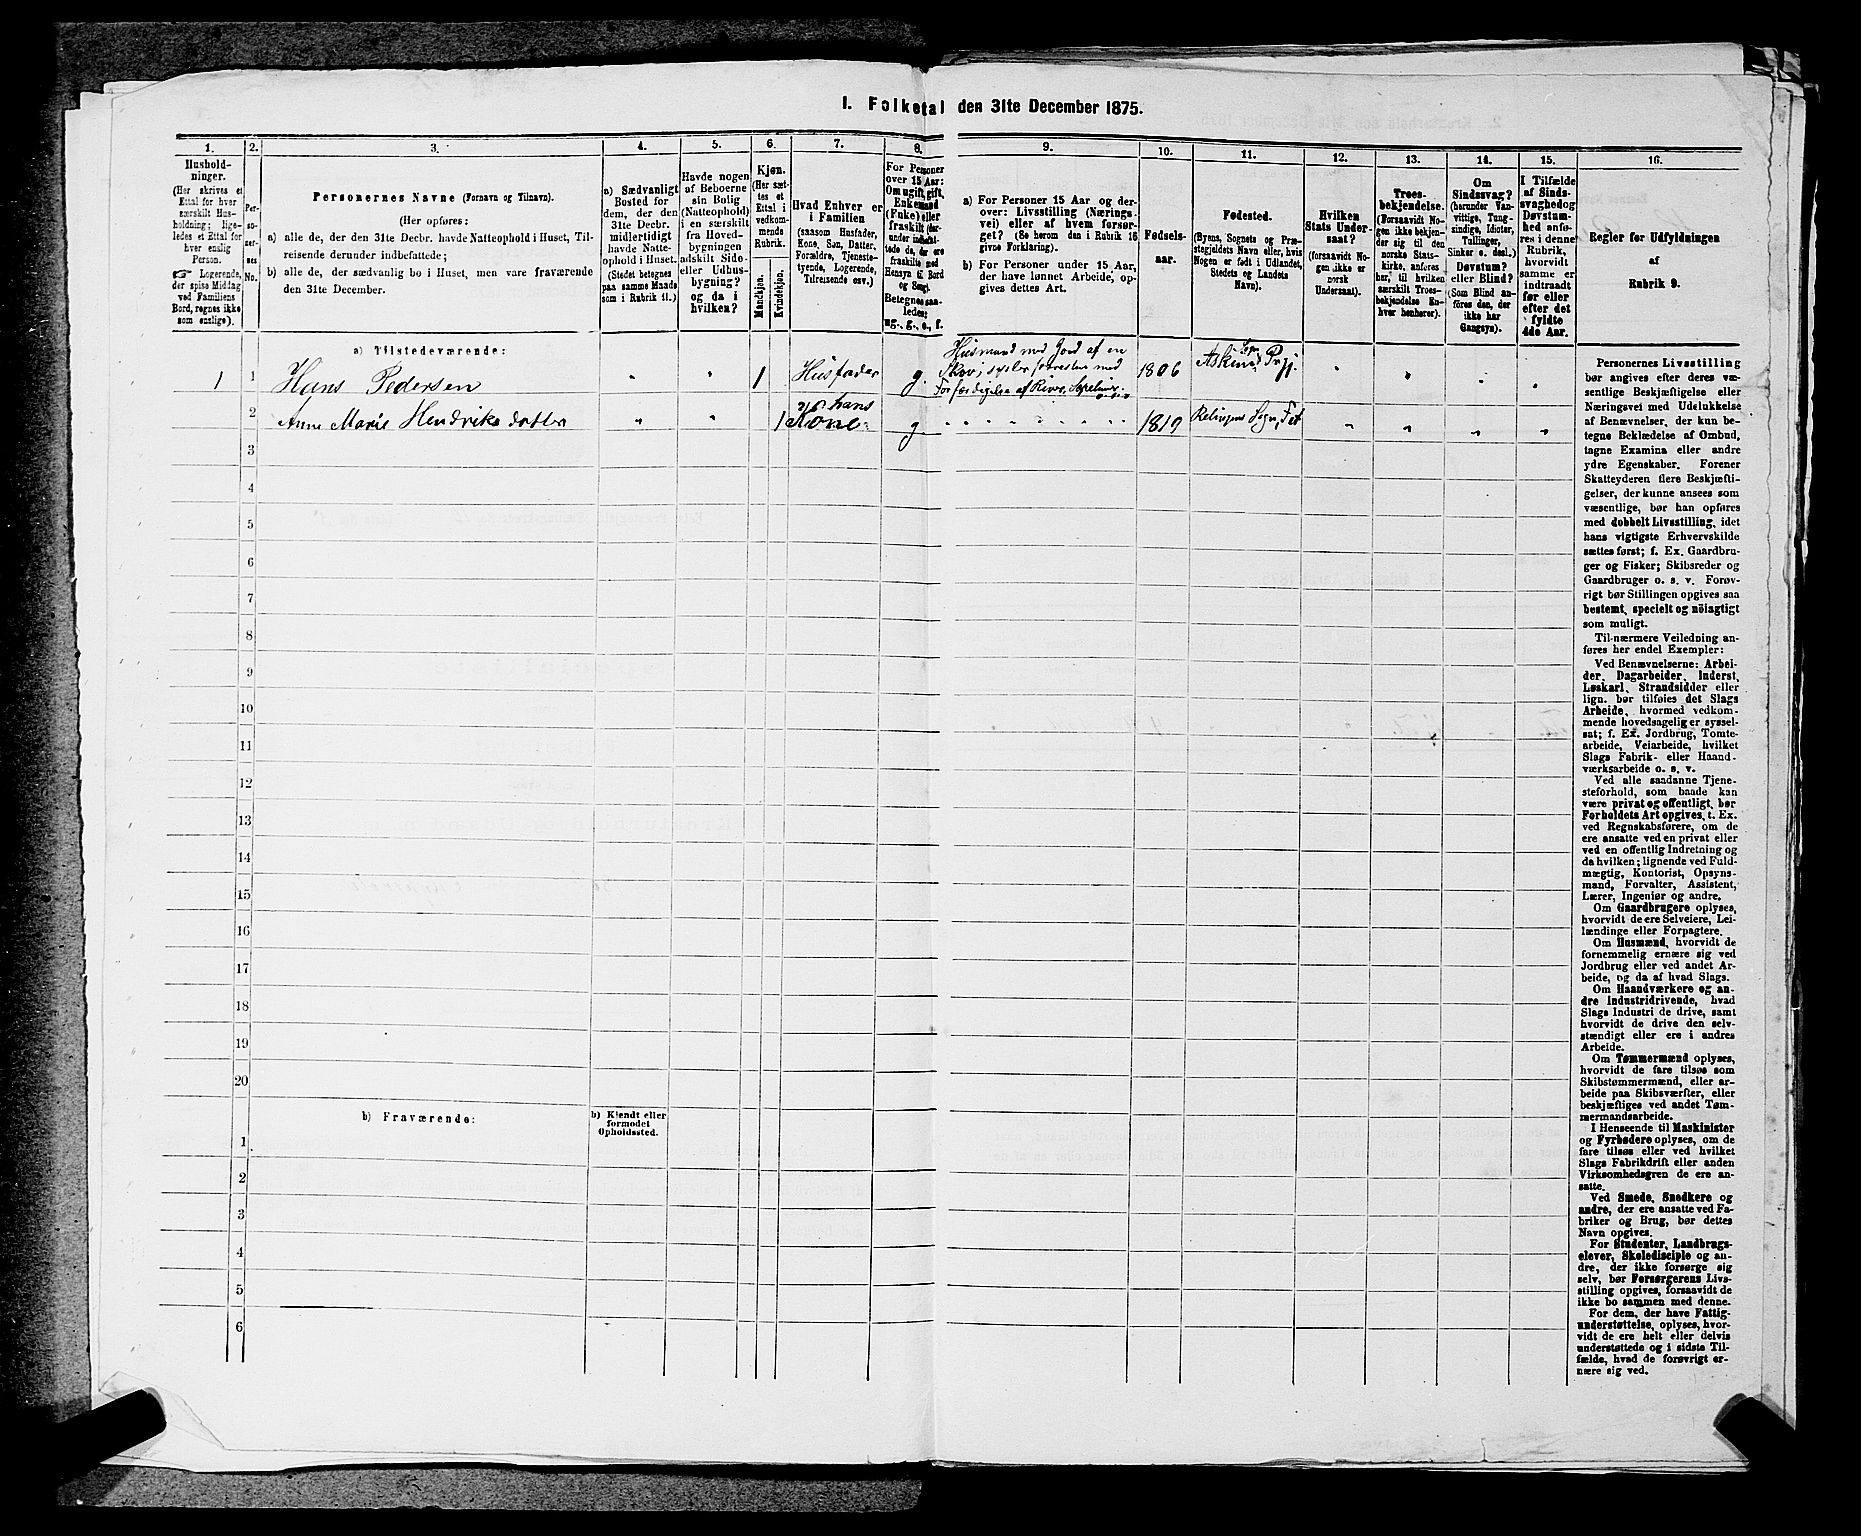 I. Folketal den 31te December 1875.
1. 2. 3. 4. 5. 6. 7. 8. 9. 10. 11. 12. 13. 14. 15. 16.
Hushold-
ninger.
(Her skrives et
Ettal for hver
særskilt Hus-
holdning; lige-
ledes et Ettal for
hver enslig
Person.
☞ Logerende,
der spise Middag
ved Familiens
Bord, regnes ikke
som enslige).
Per-
so-
ner-
nes
No.
Personernes Navne (Fornavn og Tilnavn).
(Her opføres:
a) alle de, der den 31te Decbr. havde Natteophold i Huset, Til-
reisende derunder indbefattede;
b) alle de, der sædvanlig bo i Huset, men vare fraværende
den 31te December.
a) Sædvanligt
Bosted for
dem, der den
31te Decbr.
midlertidigt
havde Natte-
ophold i Huset.
(Stedet betegnes
paa samme Maade
som i Rubrik 11.)
Havde nogen
af Beboerne
sin Bolig
(Natteophold)
i en særskilt
fra Hoved-
bygningen
adskilt Side-
eller Udhus-
bygning?
og da i
hvilken?
Kjøn.
(Her sæt-
tes et
Ettal i
vedkom-
mende
Rubrik.
Mandkjøn.
Kvindekjøn.
Hvad Enhver er
i Familien
(saasom Husfader,
Kone, Søn, Datter,
Forældre, Tjeneste-
tyende, Logerende,
Tilreisende osv.)
For Personer
over 15 Aar:
Om ugift, gift,
Enkemand
(Enke) eller
fraskilt (der-
under indbefat-
tede de, der ere
fraskilte med
Hensyn til Bord
og Seng).
Betegnes saa-
ledes:
ug., g., e., f.
a) For Personer 15 Aar og der-
over: Livsstilling (Nærings-
vei) eller af hvem forsør-
get? (Se herom den i Rubrik 16
givne Forklaring).
b) For Personer under 15 Aar,
der have lønnet Arbeide, op-
gives dettes Art.
Fødsels-
aar.
Fødested.
(Byens, Sognets og Præ-
stegjeldets Navn eller, hvis
Nogen er født i Udlandet,
Stedets og Landets
Navn).
Hvilken
Stats Under-
saat?
(forsaavidt No-
gen ikke er
norsk
Undersaat).
Troes-
bekjendelse.
(Forsaavidt No-
gen ikke bekjen-
der sig til den
norske Stats-
kirke, anføres
her, til hvilken
særskilt Troes-
bekjendelse En-
hver henhører).
Om
Sindssvag?
(herunder Van-
vittige, Tung-
sindige, Idioter,
Tullinger,
Sinker o. desl.)
Døvstum?
eller Blind?
(Som Blind an-
føres den, der
ikke har
Gangsyn).
I Tilfælde
af Sinds-
svaghed og
Døvstum-
hed anfø-
res i denne
Rubrik,
hvorvidt
samme er
indtraadt
før eller
efter det
fyldte
4de Aar.
Regler for Udfyldningen
af
Rubrik 9.
a) Tilstedeværende:
1 1 Hans Pedersen " " 1 Husfader g Husmand med Jord af en 1806 Askims Sogn Prgj.
2 Anne Marie Hendriksdatter " " 1 hans Kone g " 1819 Relingens Sogn, Fet
3
4
5
6
7
8
9
10
11
12
13
14
15
16
17
18
19
20
b) Fraværende:
b) Kjendt eller
formodet
Opholdssted.
1
2
3
4
5
6
Personernes Livsstilling
bør angives efter deres væ-
sentlige Beskjæftigelse eller
Næringsvei med Udelukkelse
af Benævnelser, der kun be-
tegne Beklædelse af Ombud,
tagne Examina eller andre
ydre Egenskaber. Forener
Skatteyderen flere Beskjæfti-
gelser, der kunne ansees som
væsentlige, bør han opføres
med dobbelt Livsstilling, idet
hans vigtigste Erhvervskilde
sættes først; f. Ex. Gaardbru-
ger og Fisker; Skibsreder og
Gaardbruger o. s. v. Forøv-
rigt bør Stillingen opgives saa
bestemt, specielt og nöiagtigt
som muligt.
Til nærmere Veiledning an-
føres her endel Exempler:
Ved Benævnelserne: Arbei-
der, Dagarbeider, Inderst,
Løskarl, Strandsidder eller
lign. bør tilføies det Slags
Arbeide, hvormed vedkom-
mende hovedsagelig er syssel-
sat; f. Ex. Jordbrug, Tomte-
arbeide, Veiarbeide, hvilket
Slags Fabrik- eller Haand-
værksarbeide o. s. v.
Ved alle saadanne Tjene-
steforhold, som baade kan
være privat og offentligt, bør
Forholdets Art opgives, t. Ex.
ved Regnskabsførere, om de
ere ansatte ved en privat eller
ved en offentlig Indretning og
da hvilken; lignende ved Fuld-
mægtig, Kontorist, Opsyns-
mand, Forvalter, Assistent,
Lærer, Ingeniør og andre.
Om Gaardbrugere oplyses,
hvorvidt de ere Selveiere, Lei-
lændinge eller Forpagtere.
Om Husmænd, hvorvidt de
fornemmelig ernære sig ved
Jordbrug eller ved andet Ar-
beide, og da af hvad Slags.
Om Haandværkere og an-
dre Industridrivende, hvad
Slags Industri de drive, samt
hvorvidt de drive den selv-
stændigt eller ere i andres
Arbeide.
Om Tømmermænd oplyses,
hvorvidt de fare tilsøs som
Skibstømmermænd, eller ar-
beide paa Skibsværfter, eller
beskjæftiges ved andet Tøm-
mermandsarbeide.
I Henseende til Maskinister
og Fyrbødere oplyses, om de
fare tilsøs eller ved hvilket
Slags Fabrikdrift eller anden
Virksomhedsgren de ere an-
satte.
Ved Smede, Snedkere og
andre, der ere ansatte ved Fa-
briker og Brug, bør dettes
Navn opgives.
For Studenter, Landbrugs-
elever, Skoledisciple og an-
dre, der ikke forsørge sig
selv, bør Forsørgerens Livs-
stilling opgives, forsaavidt de
ikke bo sammen med denne.
For dem, der have Fattig-
understøttelse, oplyses, hvor-
vidt de ere helt eller delvis
understøttede og i sidste Til-
fælde, hvad de forøvrigt er-
nære sig ved.